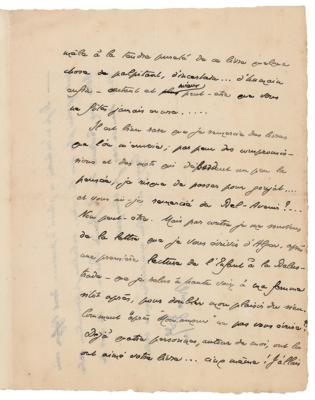 mêle à la tendre pureté de ce livre quelque
chose de palpitant, d'incertain... d'humain
enfin - autant et mieux peut-être que vous
ne fûtes jamais encore.....
Il est bien rare que je remercie des livres
que l'on m'envoie; par peur des compromis-
sions et des mots qui dépassent un peu la
pensée, je risque de passer pour goujat....
et vous ai-je remercié de Bel-Avenir?...
Non peut-être. Mais par contre je me souviens
de la lettre que je vous écrivis d'Alger, après
une première lecture de l'Enfant à la Balus-
trade - que je relus à haute voix à ma femme
sitôt après, pour doubler mon plaisir du sien.
Comment après "Mon amour" ne pas vous écrire?
Déjà quatre personnes, autour de moi, ont lu
ont aimé votre livre... cinq même! J'allais